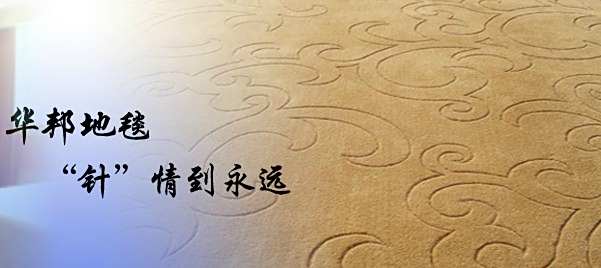 华邦地毯
“针”情到永远